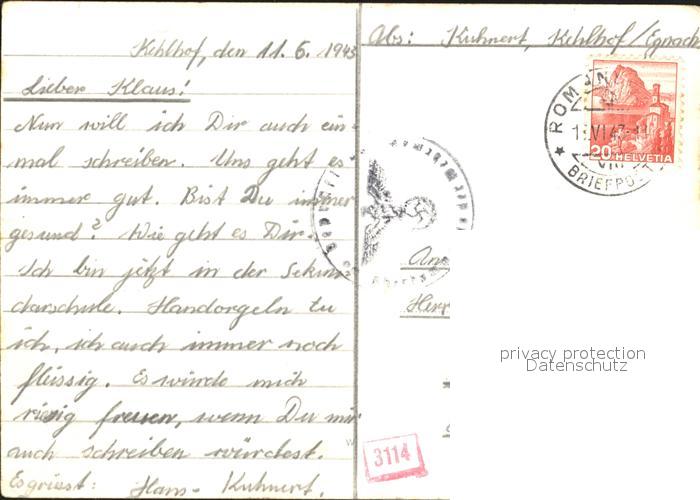 Kehlhof, den 11. 6. 1943
Lieber Klaus!
Nun will ich Dir auch ein-
mal schreiben. Uns geht es
immer gut. Bist Du immer
gesund? Wie geht es Dir.
Ich bin jetzt in der Sekun-
darschule. Handorgeln tu
ich, ich auch immer noch
flüssig. Es würde mich
riesig freuen, wenn Du mir
auch schreiben würdest.
Es grüsst: Hans- Kuhnert.
Abs: Kuhnert, Kehlhof/Egnach
BRIEFPOST
20 HELVETIA
An
Herr
privacy protection
Datenschutz
3114